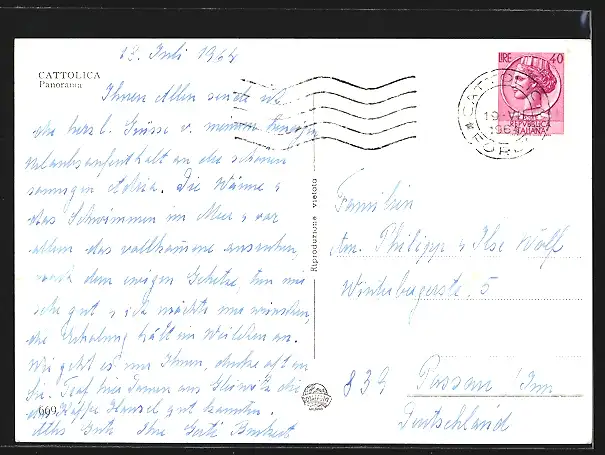 18. Juli 1964
CATTOLICA
Panorama
Ihnen Allen sende ich
die herzl. Grüsse v. meinem
Urlaubsaufenthalt an der schönen
sonnigen Adria. Die Wärme &
das Schwimmen im Meer & vor
allem das vollkommene ausruhen,
nach dem ewigen Gehetze, tun mir
sehr gut & ich möchte nur wünschen,
die Erholung hält ein Weilchen an.
Wie geht es nur Ihnen, denke oft an
Sie. Traf hier Damen aus Gleiwitz die
Hansel gut kannten.
Alles Gute Ihre Gerti
669
Riproduzione vietata
LIRE 40
REPVBBLICA
ITALIANA
CATTOLICA
19-VII
196
FORLI
Familie
Fam. Philipp & Ilse Wolf
Winterbergerstr. 5
839 Passau/Inn
Deutschland